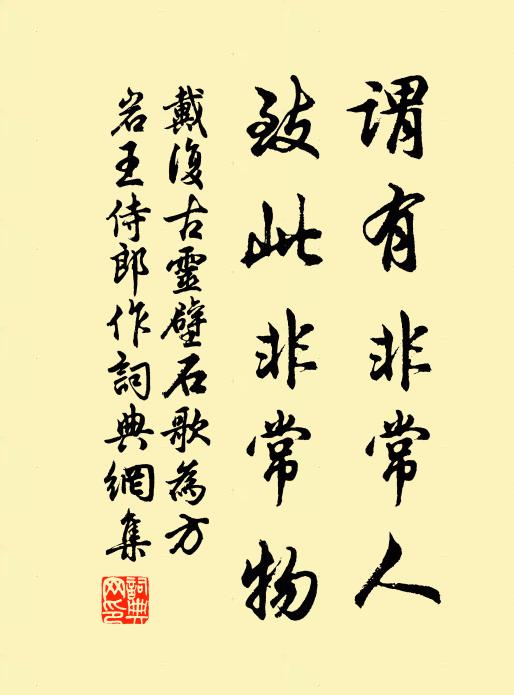 謂有非常人
致此非常物
戴復古靈壁石歌為方
岩王侍郎作詞典網集
詞典網印